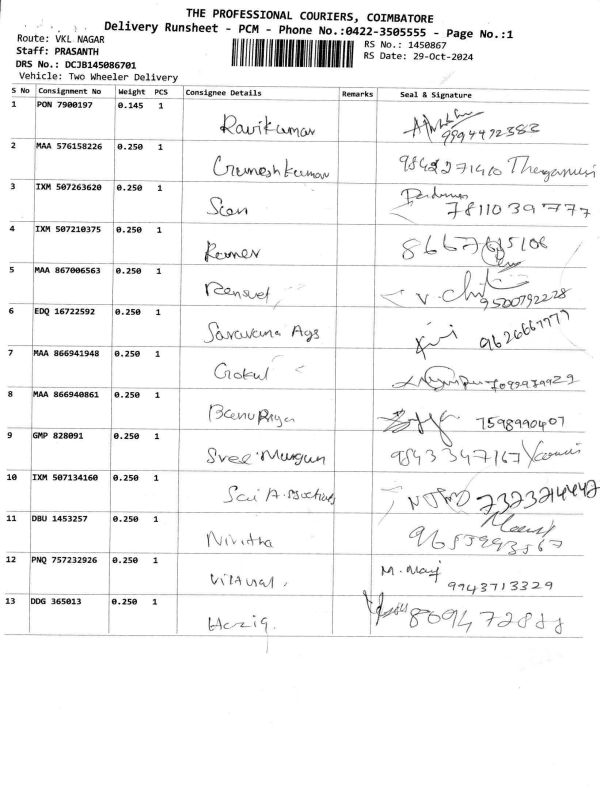 THE PROFESSIONAL COURIERS, COIMBATORE
Delivery Runsheet - PCM - Phone No.:0422-3505555 - Page No.:1
Route: VKL NAGAR RS No.: 1450867
Staff: PRASANTH RS Date: 29-Oct-2024
DRS No.: DCJB145086701
Vehicle: Two Wheeler Delivery
S No Consignment No Weight PCS Consignee Details Remarks Seal & Signature
1 PON 7900197 0.145 1
Ravikumar 9994492383
2 MAA 576158226 0.250 1
Guneshkumar 9842271410
3 IXM 507263620 0.250 1
Sien 7811039777
4 IXM 507210375 0.250 1
5 MAA 867006563 0.250 1
V. 9500792228
6 EDQ 16722592 0.250 1
Saravana Ags 9626667777
7 MAA 866941948 0.250 1
Gokul
8 MAA 866940861 0.250 1
Banupriya 7598990407
9 GMP 828091 0.250 1
Sree Murugan 9843347167
10 IXM 507134160 0.250 1
Sai 7323214442
11 DBU 1453257 0.250 1
Nivitha
12 PNQ 757232926 0.250 1
M. 9943713329
13 DDG 365013 0.250 1